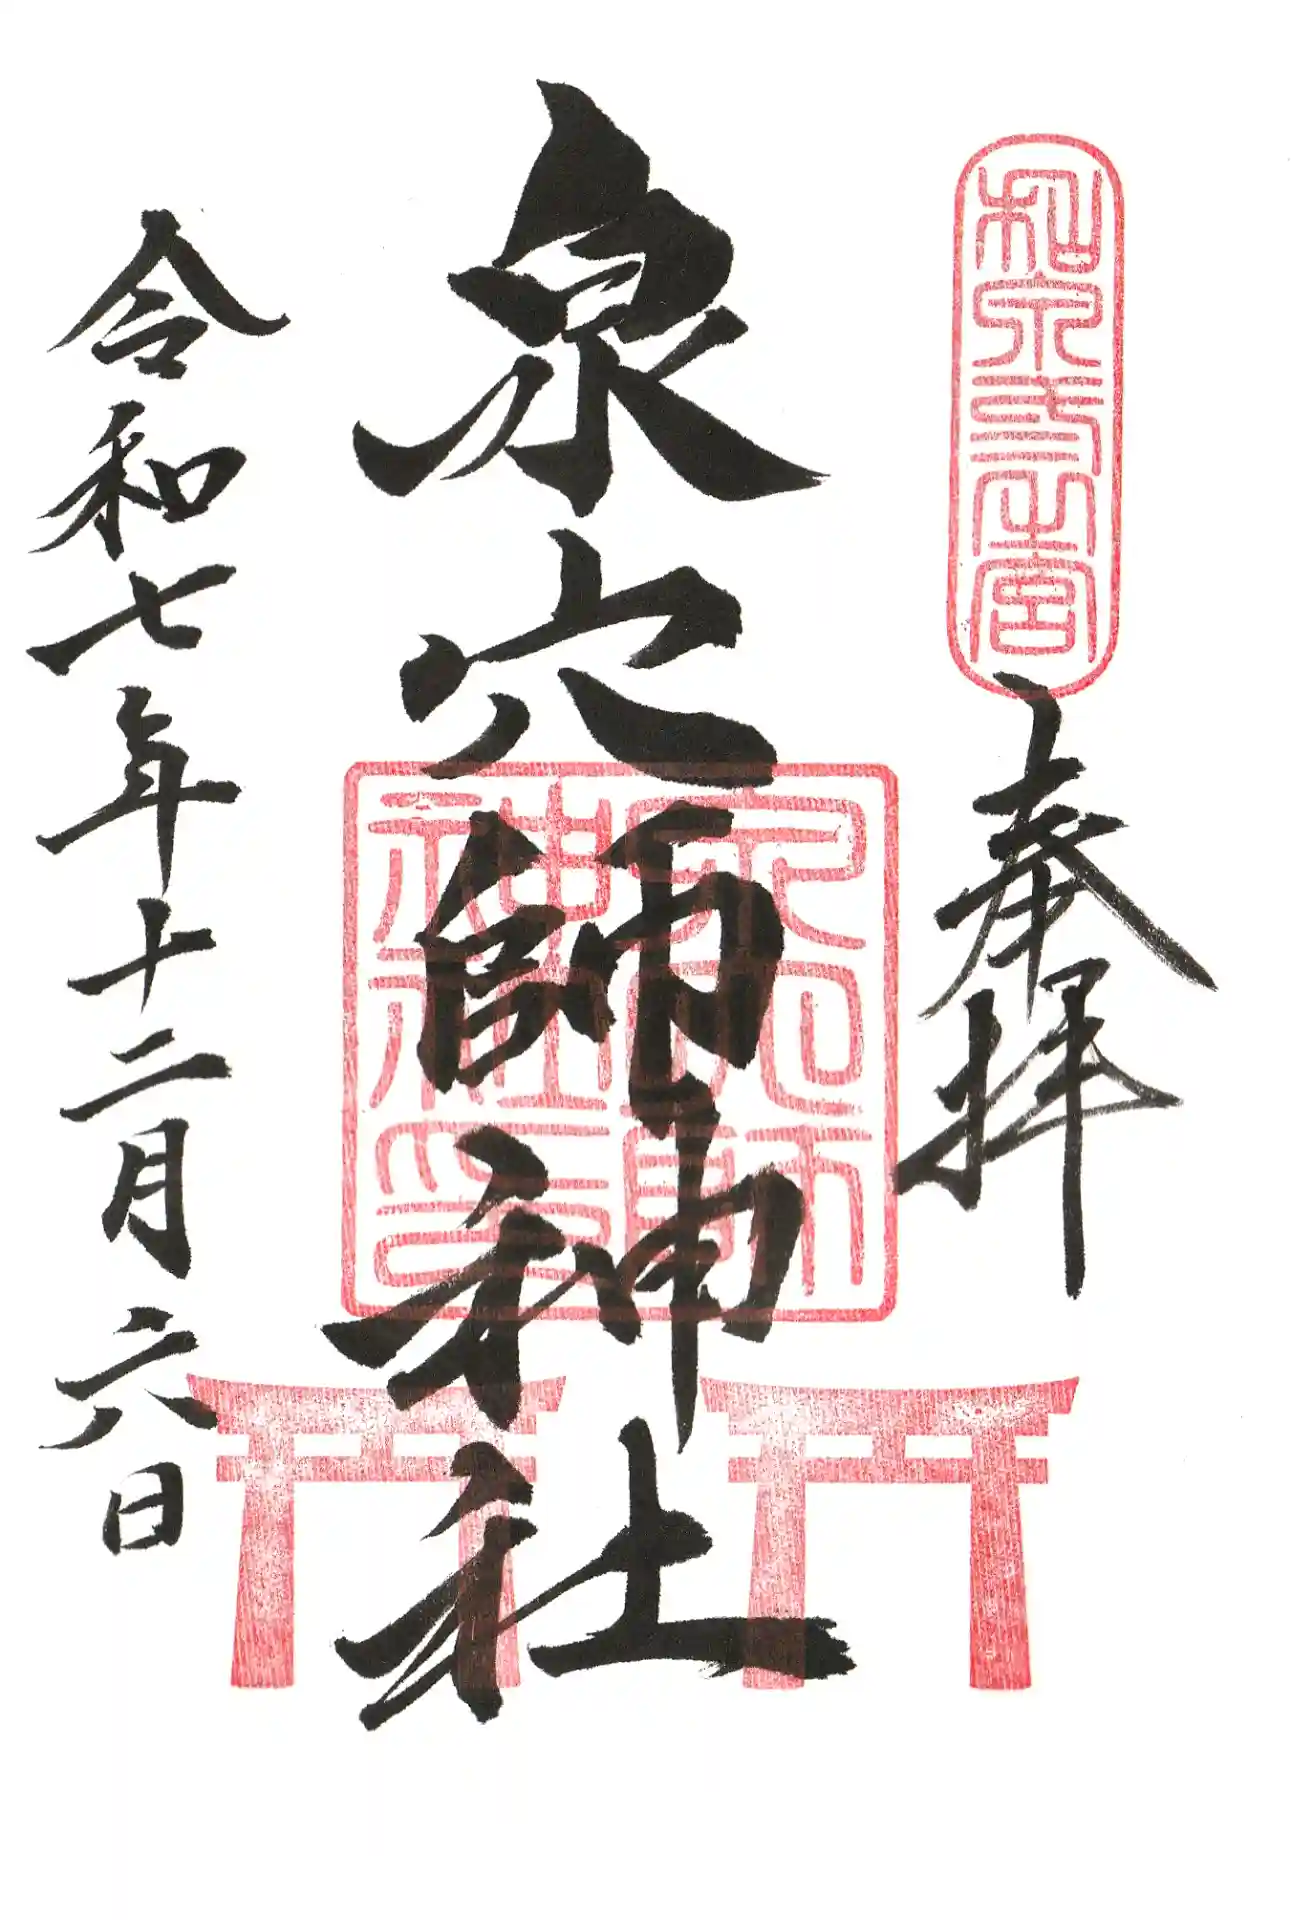 和泉弐之宮
奉拝
泉穴師神社
泉穴師
神社印
令和七年十二月六日